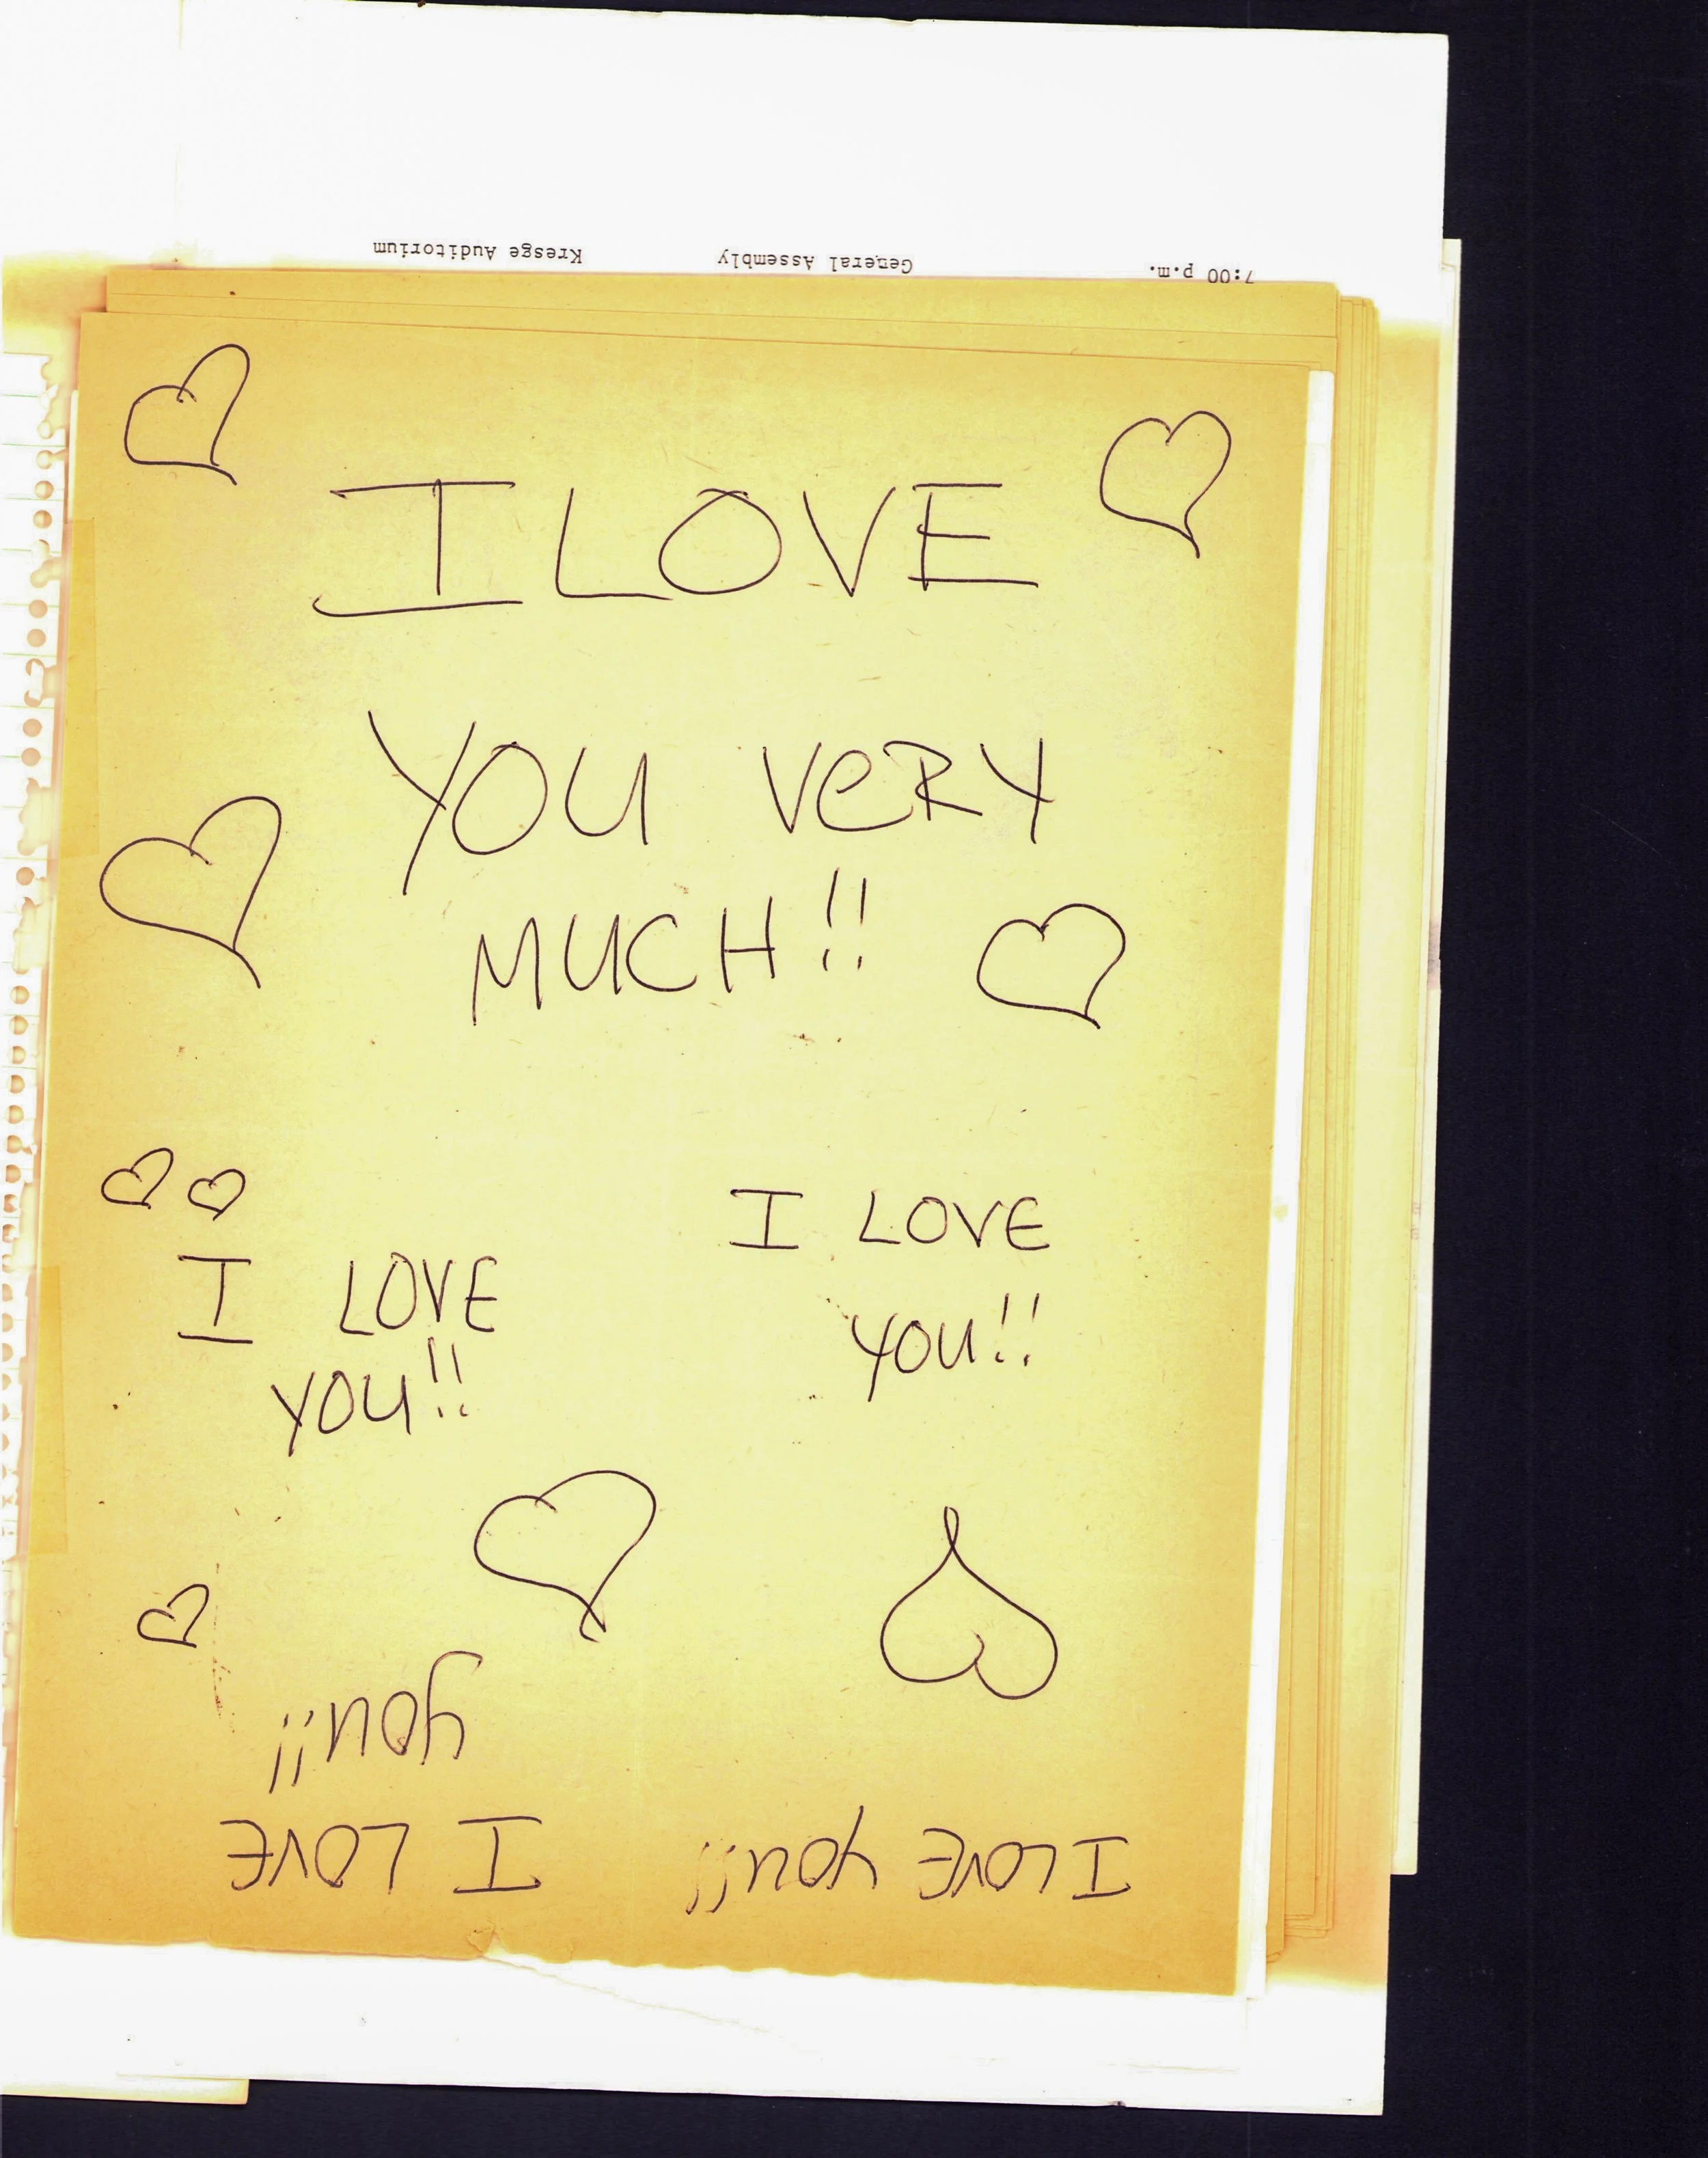 7:00 p.m. General Assembly Kresge Auditorium
I LOVE
YOU VeRY
MUCH!!
I LOVE
YOU!!
I LOVE
YOU!!
I LOVE
you!!
I LOVE you!!